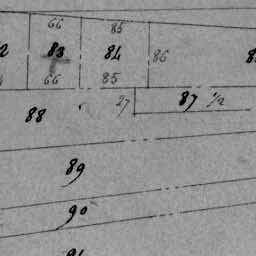 66 85
2 83 84 86 8
66 85
27 87 ½
88
89
90
91